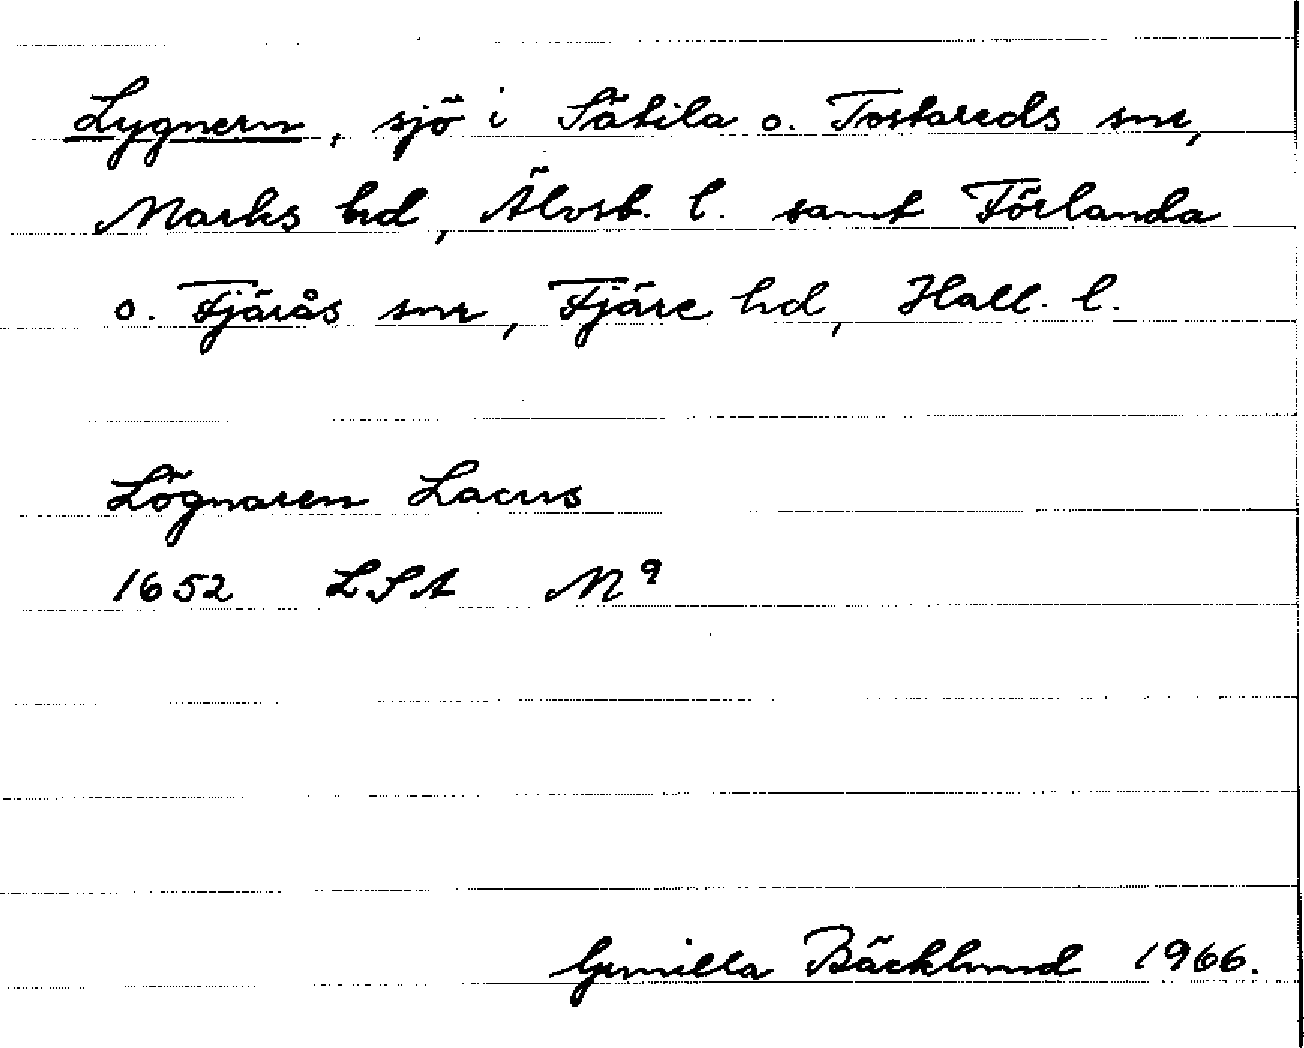 Lygnern, sjö i Sätila o. Tostareds snr,
Marks hd, Älvsb. l. samt Förlanda
o. Fjärås snr, Fjäre hd, Hall. l.
Lögnaren Lacus
1652 LSA M9
Gunilla Bäcklund 1966.